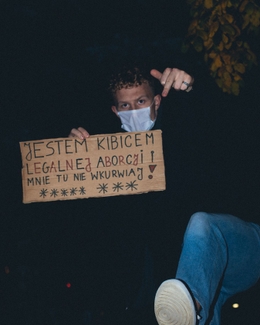 JESTEM KIBICEM
LEGALNEJ ABORCJI!
MNIE TU NIE WKURWIAJ!
***** ***